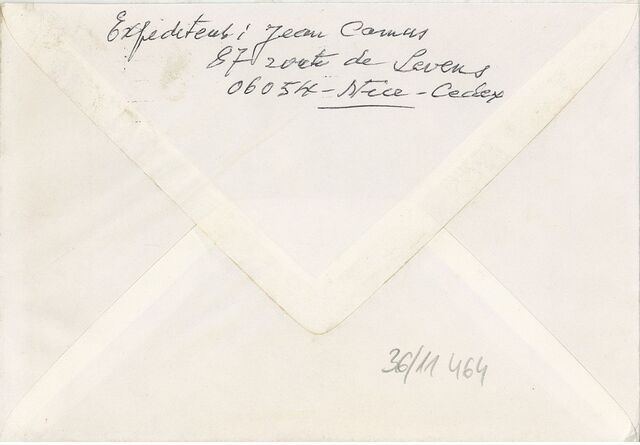 Expéditeur : Jean Camus
87 route de Levens
06054 - Nice - Cedex
36/11 464